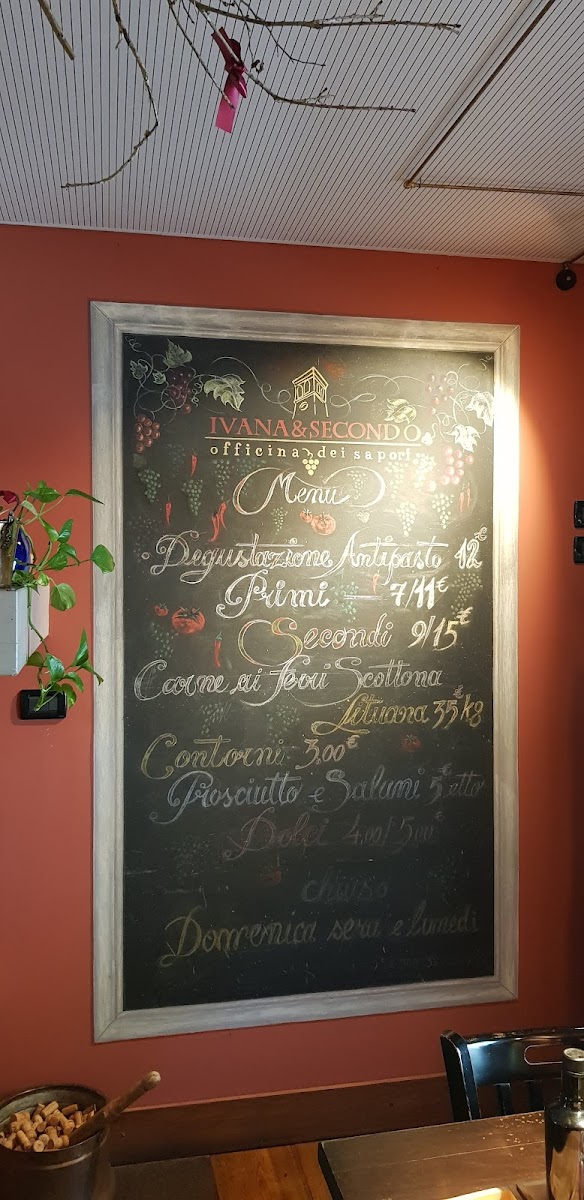 IVANA&SECONDO
officina dei sapori
Menu
Degustazione Antipasto 12€
Primi — 7/11€
Secondi 9/15€
Carne ai Ferri Scottona
Lituana 35€ kg
Contorni 3,00€
Prosciutto e Salumi 5€ etto
Dolci 4,00/5,00€
chiuso
Domenica sera e lunedi